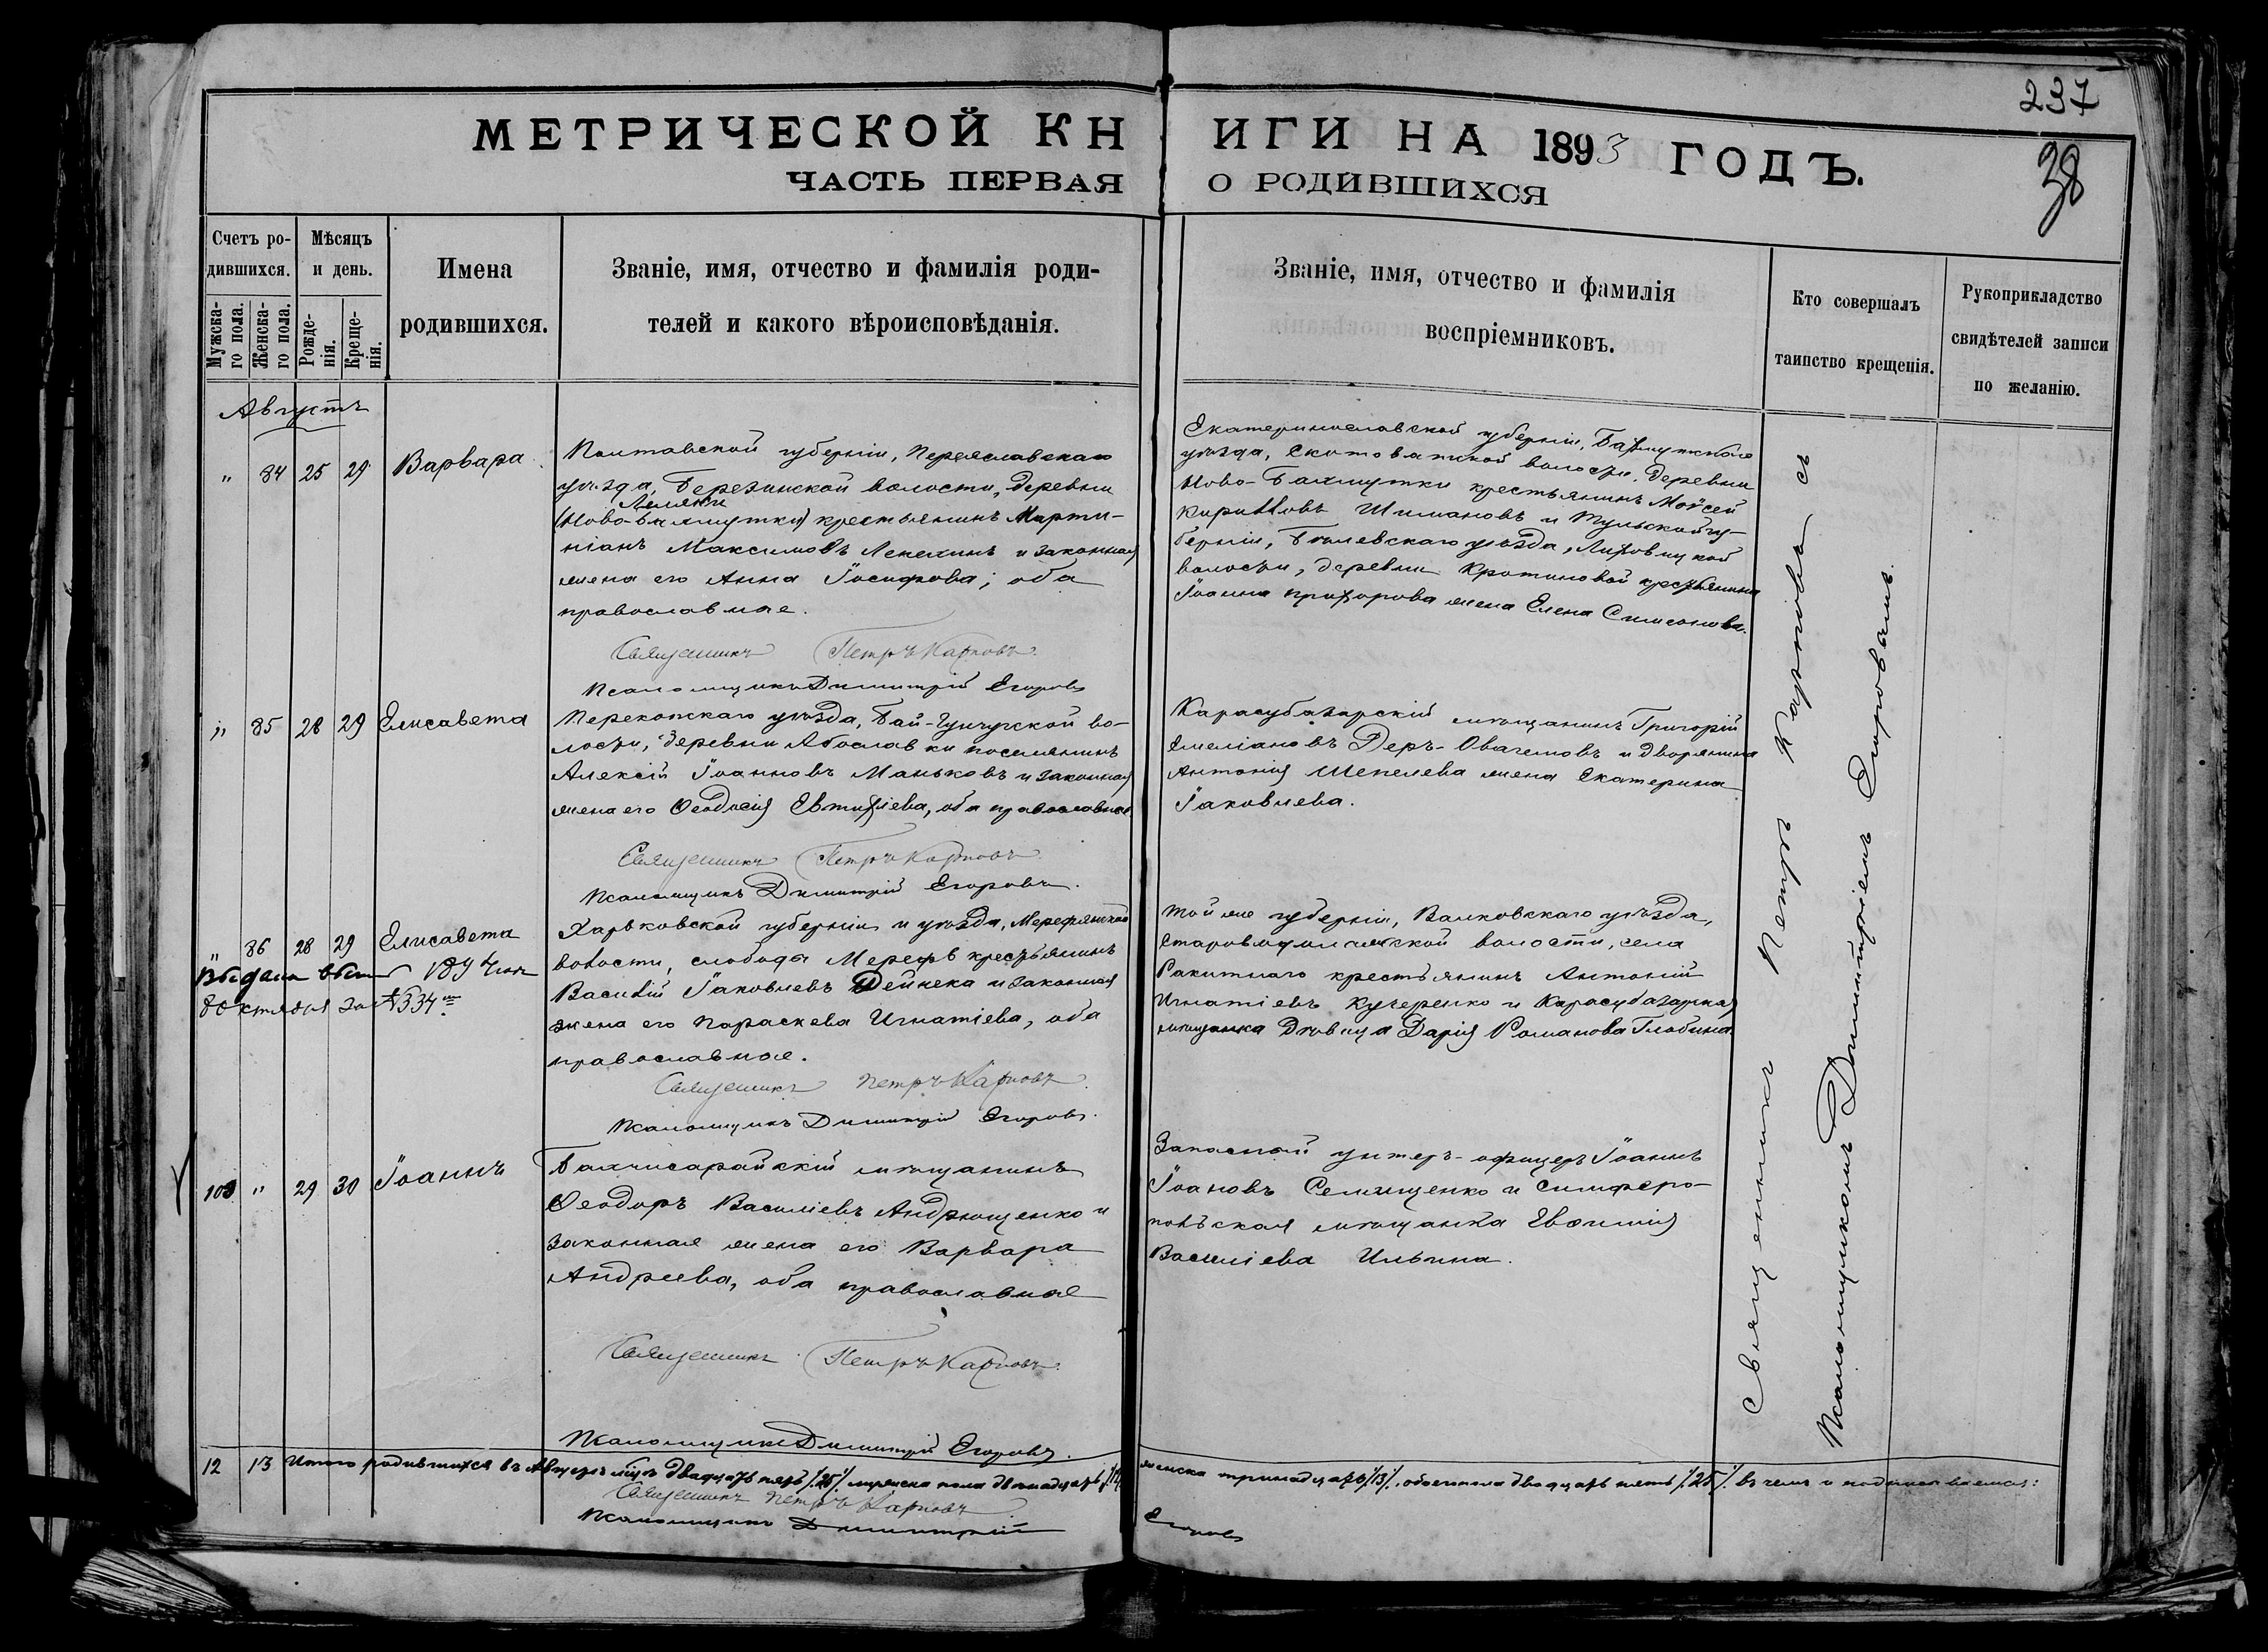 237
38
МЕТРИЧЕСКОЙ КНИГИ НА 1893 ГОДЪ.
ЧАСТЬ ПЕРВАЯ О РОДИВШИХСЯ
Счетъ ро-
дившихся.
Мужска-
го пола.
Женска-
го пола.
Мѣсяцъ
и день.
Рожде-
нія.
Креще-
нія.
Имена
родившихся.
Званіе, имя, отчество и фамилія роди-
телей и какого вѣроисповѣданія.
Званіе, имя, отчество и фамилія
воспріемниковъ.
Кто совершалъ
таинство крещенія.
Рукоприкладство
свидѣтелей записи
по желанію.
Августъ
" 84 25 29 Варвара
Полтавской губерніи, Переяславскаго
уѣзда, Березинской волости, деревни
(Ново-Бахмутки) крестьянинъ Марти-
ніанъ Максимовъ Лепехинъ и законная
жена его Анна Іосифова; оба
православные.
Священникъ Петръ Карповъ.
Псаломщикъ Димитрій Егоровъ
Екатеринославской губерніи, Бахмутскаго
уѣзда, Скотоватской волости, деревни
Ново-Бахмутки крестьянинъ Моѵсей
Кирилловъ Шимановъ и Тульской гу-
берніи, Бѣлевскаго уѣзда, волости, деревни Кротиновой крестьянина
Іоанна Прохорова жена Елена Симеонова.
" 85 28 29 Елисавета
Перекопскаго уѣзда, Бай-Гунчукской во-
лости, деревни поселянинъ
Алексій Іоанновъ Маньковъ и законная
жена его Ѳеодосія Евтихіева, оба православные.
Священникъ Петръ Карповъ
Псаломщикъ Димитрій Егоровъ.
Карасубазарскій мѣщанинъ Григорій
Емеліановъ Деръ-Овагемовъ и дворянина
Антонія Шепелева жена Екатерина
Іаковлева.
" 86 28 29 Елисавета
1894 года
8 октября за № 334
Харьковской губерніи и уѣзда, Мерефянской
волости, слобода Мерефъ крестьянинъ
Василій Іаковлевъ Дейнека и законная
жена его Параскева Игнатіева, оба
православные.
Священникъ Петръ Карповъ.
Псаломщикъ Димитрій Егоровъ.
Той же губерніи, Валковскаго уѣзда,
волости, села
Ракитнаго крестьянинъ Антоній
Игнатіевъ Кучеренко и Карасубазарская
мѣщанка дѣвица Дарія Романова Глобина
103 " 29 30 Іоаннъ
Бахчисарайскій мѣщанинъ
Ѳеодоръ Василіевъ Андрющенко и
законная жена его Варвара
Андреева, оба православные
Священникъ Петръ Карповъ.
Псаломщикъ Димитрій Егоровъ.
Запасной унтеръ-офицеръ Іоаннъ
Іоановъ Селищенко и симферо-
польская мѣщанка Евѳимія
Василіева Ильина.
Священникъ Петръ Карповъ съ
Псаломщикомъ Димитріемъ Егоровымъ.
12 13 Итого родившихся въ Августѣ м-цѣ двадцать пять /25/ мужска пола двѣнадцать /12/ женска тринадцать /13/, обоего пола двадцать пять /25/ въ чемъ и подписываемся:
Священникъ Петръ Карповъ
Псаломщикъ Димитрій Егоровъ